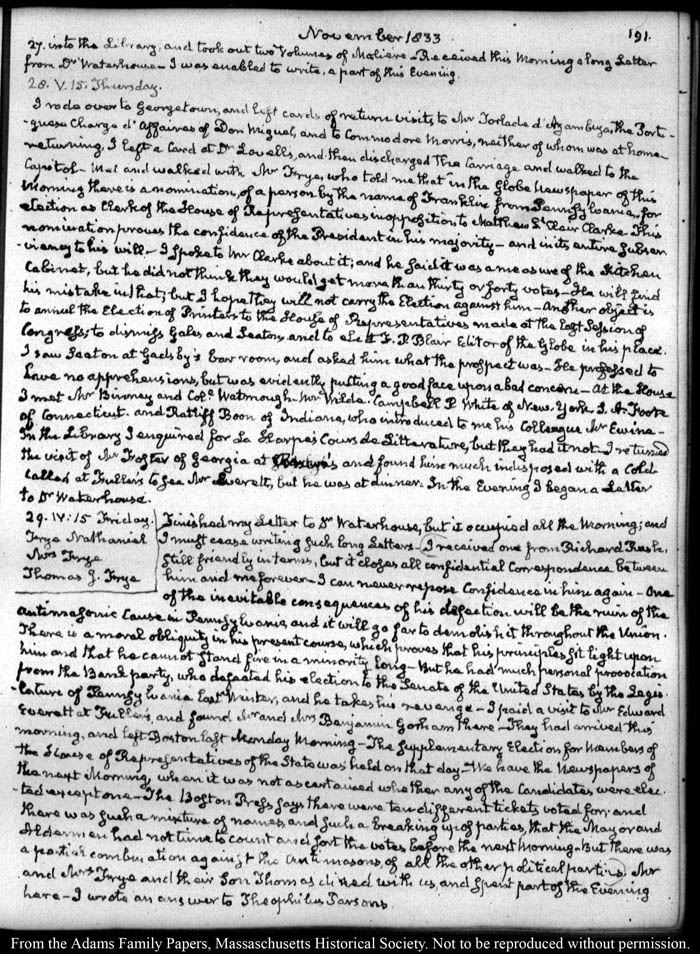 November 1833. 191.
27. into the Library, and took out two Volumes of Moliere - Received this Morning a long Letter
from Dr Waterhouse - I was enabled to write, a part of this Evening.
28. V. 15. Thursday.
I rode over to Georgetown, and left cards of return visits to Mr Torlade d'Azambuja, the Portu-
-guese Chargé d'Affaires of Don Miguel, and to Commodore Morris, neither of whom was at home -
returning, I left a Card at Dr Lovell's, and then discharged the Carriage and walked to the
Capitol - Met and walked with Mr Frye, who told me that in the Globe Newspaper of this
Morning there is a nomination, of a person by the name of Franklin from Pennsylvania, for
election as Clerk of the House of Representatives in opposition to Matthew St Clair Clarke. This
nomination proves the confidence of the President in his majority - and in its entire subser-
-viency to his will - I spoke to Mr Clarke about it; and he said it was a measure of the Kitchen
Cabinet, but he did not think they would get more than thirty or forty votes - He will find
his mistake in that; but I hope they will not carry the Election against him - Another object is
to annul the Election of Printers to the House of Representatives made at the last Session of
Congress; to dismiss Gales and Seaton, and to elect F. P. Blair Editor of the Globe in his place.
I saw Seaton at Gadsby's bar room, and asked him what the prospect was - He professed to
have no apprehensions, but was evidently putting a good face upon a bad concern - At the House
I met Mr Binney and Coll Watmough - Mr Wilde. Campbell P. White of New York. S. A. Foote
of Connecticut. and Ratliff Boon of Indiana, who introduced to me his Colleague Mr Ewing -
In the Library I enquired for La Harpe's Cours de Litterature, but they had it not - I returned
the visit of Mr Foster of Georgia at and found him much indisposed with a Cold
Called at Fuller's to see Mr Everett, but he was at dinner. In the Evening I began a Letter
to Dr Waterhouse.
29. IV: 15 Friday.
Frye Nathaniel
Mrs Frye
Thomas J. Frye
Finished my Letter to Dr Waterhouse, but it occupied all the Morning; and
I must cease writing such long Letters - I received one from Richard Rush,
still friendly in terms, but it closes all confidential Correspondence between
him and me forever - I can never repose Confidence in him again - One
of the inevitable consequences of his defection will be the ruin of the
Antimasonic Cause in Pennsylvania, and it will go far to demolish it throughout the Union.
There is a moral obliquity in his present course, which proves that his principles sit light upon
him and that he cannot stand fire in a minority long - But he had much personal provocation
from the Bank party, who defeated his election to the Senate of the United States by the Legis-
-lature of Pennsylvania last Winter, and he takes his revenge - I paid a visit to Mr Edward
Everett at Fuller's, and found Mr and Mrs Benjamin Gorham there - They had arrived this
morning, and left Boston last Monday Morning - The supplementary Election for Members of
the House of Representatives of the State was held on that day - We have the Newspapers of
the next Morning, when it was not ascertained whether any of the Candidates were elec-
-ted except one - The Boston Press says there were ten different tickets voted for; and
there was such a mixture of names, and such a breaking up of parties, that the Mayor and
Aldermen had not time to count and sort the votes before the next Morning - But there was
a partial combination against the Antimasons, of all the other political parties. Mr
and Mrs Frye and their Son Thomas dined with us, and spent part of the Evening
here - I wrote an answer to Theophilus Parsons.
From the Adams Family Papers, Massachusetts Historical Society. Not to be reproduced without permission.